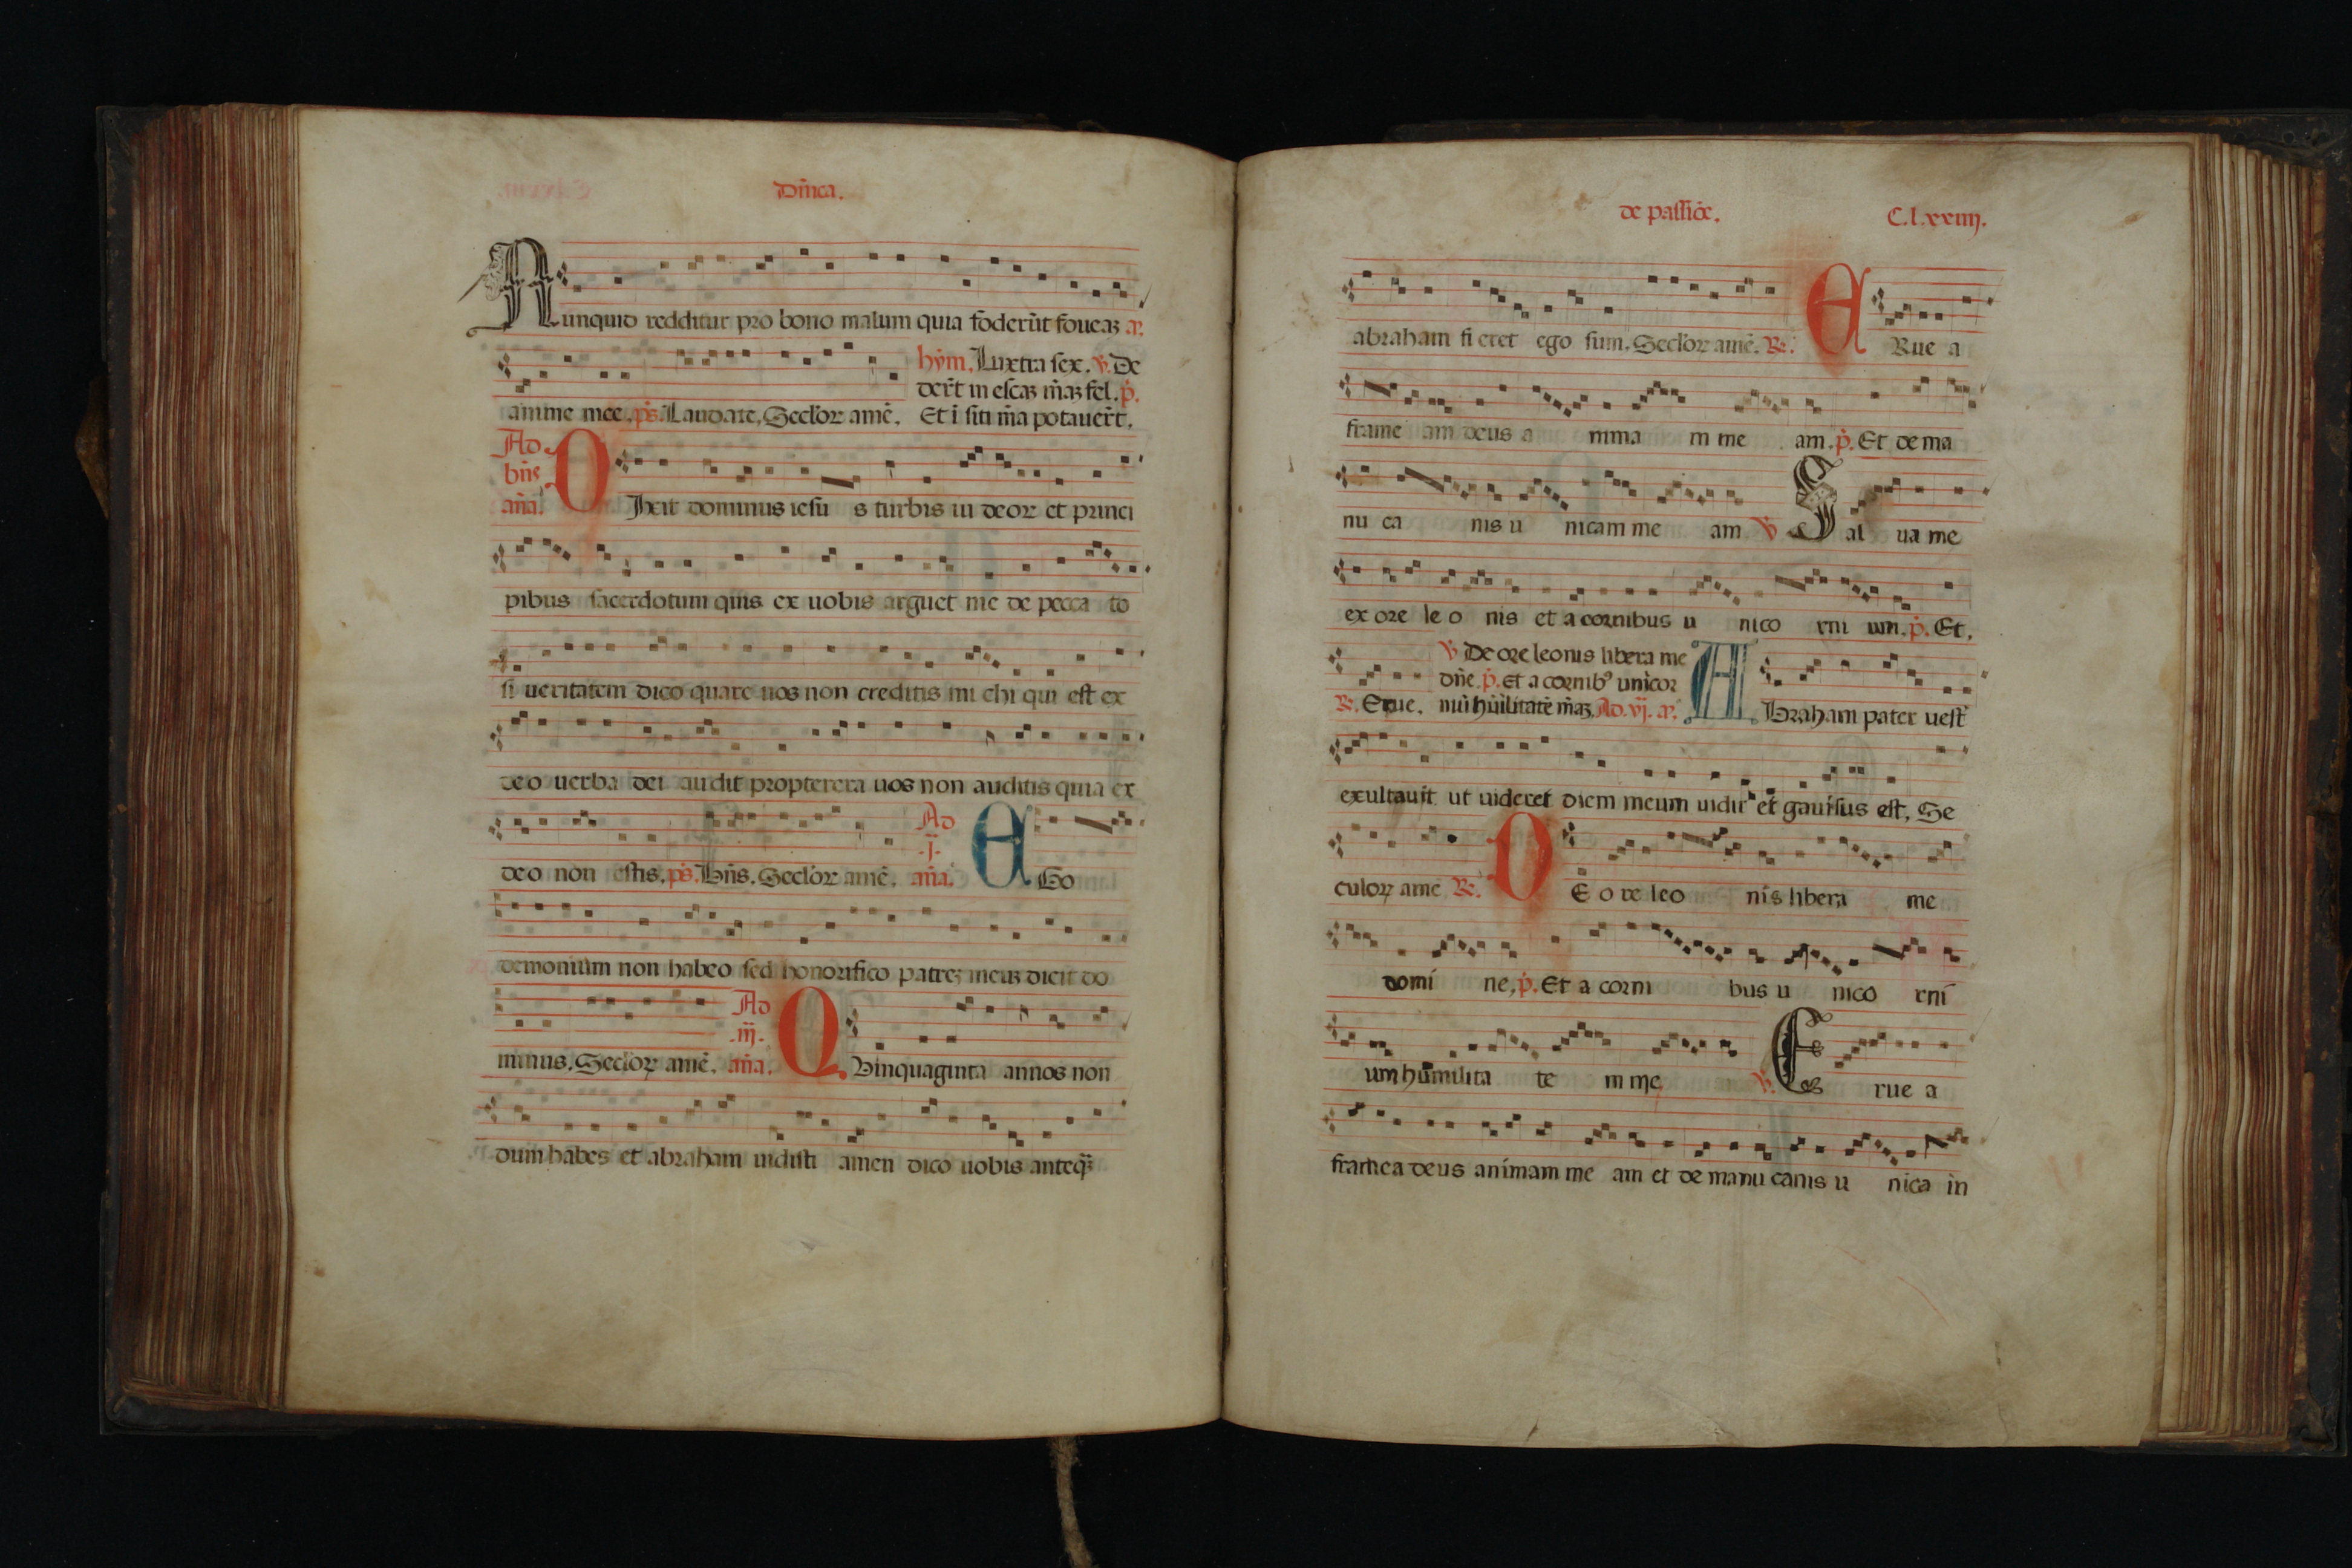 Dñica.
Nunquid redditur pro bono malum quia foderūt foueaʒ a᷑.
hym̄. Iuxtra sex. ℣. De
derūt in escaʒ m̄aʒ fel. p᷑.
anime mee. ps̄. Laudate. Secl'oꝝ amē. Et ī siti m̄a potauer̄t.
Ad
bn̄s
an̄a.
DIxit dominus iesu s turbis iu deoꝝ et princi
pibus sacerdotum quis ex uobis arguet me de pecca to
si ueritatem dico quare uos non creditis mi chi qui est ex
deo uerba dei audit propterera uos non auditis quia ex
deo non estis. ps̄. Bn̄s. Secl'oꝝ amē. Ad .j. an̄a. EGo
demonium non habeo sed honorifico patreʒ meuʒ dicit do
minus. Secl'oꝝ amē. Ad .iij. an̄a. QVinquaginta annos non
dum habes et abraham uidisti amen dico uobis anteqʒ
de passiōe. C.l.xxiiij.
abraham fieret ego sum. Secl'oꝝ amē. ℟. ERue a
frame am deus a nima m me am. p᷑. Et de ma
nu ca nis u nicam me am ℣ Sal ua me
ex ore le o nis et a cornibus u nico rni um. p᷑. Et.
℣ De ore leonis libera me
dn̄e. p᷑. Et a cornibꝰ unicor
℟. Erue. niū hūilitatē m̄aʒ. Ad .vj. a᷑. ABraham pater uest'
exultauit ut uideret diem meum uidit et gauisus est. Se
culoꝝ amē ℟. DE o re leo nis libera me
domi ne. p᷑. Et a corni bus u nico rni
um humilita te m me ℣. Erue a
framea deus animam me am et de manu canis u nica in